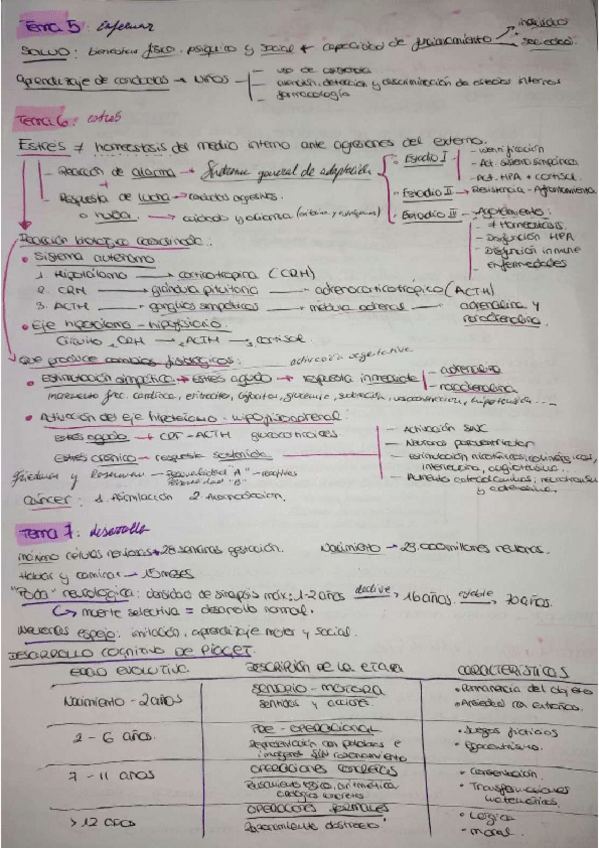 Tema 5: Enfermar
SALUD: bienestar físico, psíquico y social + capacidad de funcionamiento → individuo
sociedad.
Aprendizaje de conductas → NIÑOS
- uso de
- atención, detección y discriminación de estados internos
- farmacología
Tema 6: estrés
Estrés ≠ homeostasis del medio interno ante agresiones del externo.
- Reacción de alarma → Síndrome general de adaptación
• Estadio I
- identificación
- Act. sistema simpático
- Act. HPA + cortisol.
• Estadio II → Resistencia - Afrontamiento
• Estadio III → Agotamiento:
- ≠ Homeostasis.
- Disfunción HPA
- Disfunción inmune
- enfermedades
- Respuesta de lucha → conductas agresivas.
o huida. → cuidado y
Reacción biológica coordinada:
• Sistema autónomo
1. Hipotálamo → corticotropina (CRH)
2. CRH → glándula pituitaria → adrenocorticotrópico (ACTH)
3. ACTH → ganglios simpáticos → médula adrenal → adrenalina y
noradrenalina.
• Eje hipotálamo - hipofisiario
Circuito CRH → ACTH → cortisol.
Que produce cambios fisiológicos: activación vegetativa
• estimulación simpática → estrés agudo → respuesta inmediata
- adrenalina
- noradrenalina
Incremento frec. cardíaca, glucemia, sudoración, vasoconstricción, hipotensión ...
• Activación del eje hipotálamo - hipofisoadrenal:
Estrés agudo → CRF - ACTH glucocorticoides
Estrés crónico → respuesta sostenida
- Activación SNC
- Neurona parvoventricular
- estimulación
- Aumento
y adrenalina.
Friedman y Rosenman - Personalidad "A"
Personalidad "B"
Cáncer: 1. Asimilación 2. Acomodación.
Tema 7: desarrollo
máximo células nerviosas → 28 semanas gestación. Nacimiento → 23.000 millones neuronas.
Hablar y caminar → 15 meses
"Poda" neurológica: densidad de sinapsis máx: 1-2 años declive → 16 años estable → 70 años.
↳ muerte selectiva = desarrollo normal.
Neuronas espejo: imitación, aprendizaje motor y social.
DESARROLLO COGNITIVO DE PIAGET.
EDAD EVOLUTIVA DESCRIPCIÓN DE LA ETAPA CARACTERÍSTICAS
Nacimiento - 2 años SENSORIO - MOTORA
sentidos y acción.
• Permanencia del objeto
• Ansiedad con extraños.
2 - 6 años. PRE - OPERACIONAL
Representación con palabras e
imágenes SIN razonamiento
• Juegos ficticios
• Egocentrismo.
7 - 11 años OPERACIONES CONCRETAS
Pensamiento lógico, aritmética
analogías concretas
• Conservación.
• Transformaciones
matemáticas.
> 12 años OPERACIONES formales
Razonamiento abstracto
• Lógica
• moral.